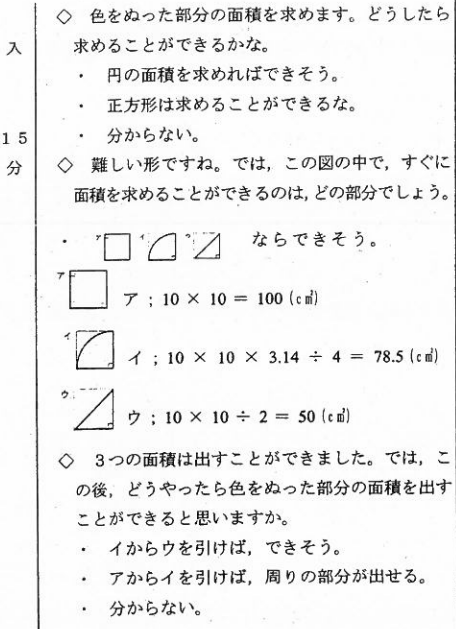 入
15
分
◇ 色をぬった部分の面積を求めます。どうしたら
求めることができるかな。
・ 円の面積を求めればできそう。
・ 正方形は求めることができるな。
・ 分からない。
◇ 難しい形ですね。では，この図の中で，すぐに
面積を求めることができるのは，どの部分でしょう。
・ ア イ ウ ならできそう。
ア ア ; 10 × 10 = 100 (c㎡)
イ イ ; 10 × 10 × 3.14 ÷ 4 = 78.5 (c㎡)
ウ ウ ; 10 × 10 ÷ 2 = 50 (c㎡)
◇ 3つの面積は出すことができました。では，こ
の後，どうやったら色をぬった部分の面積を出す
ことができると思いますか。
・ イからウを引けば，できそう。
・ アからイを引けば，周りの部分が出せる。
・ 分からない。